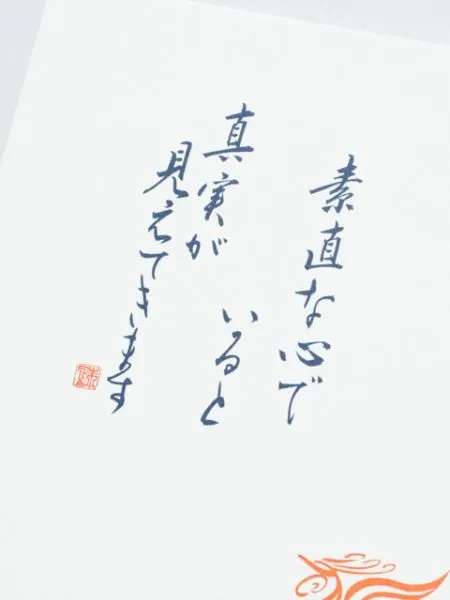 素直な心で
いると
真実が
見えてきます